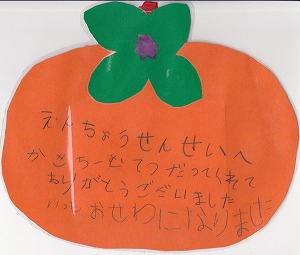 えんちょうせんせいへ
かとちーむてつだってくれて
ありがとうございました
いつも おせわになりました